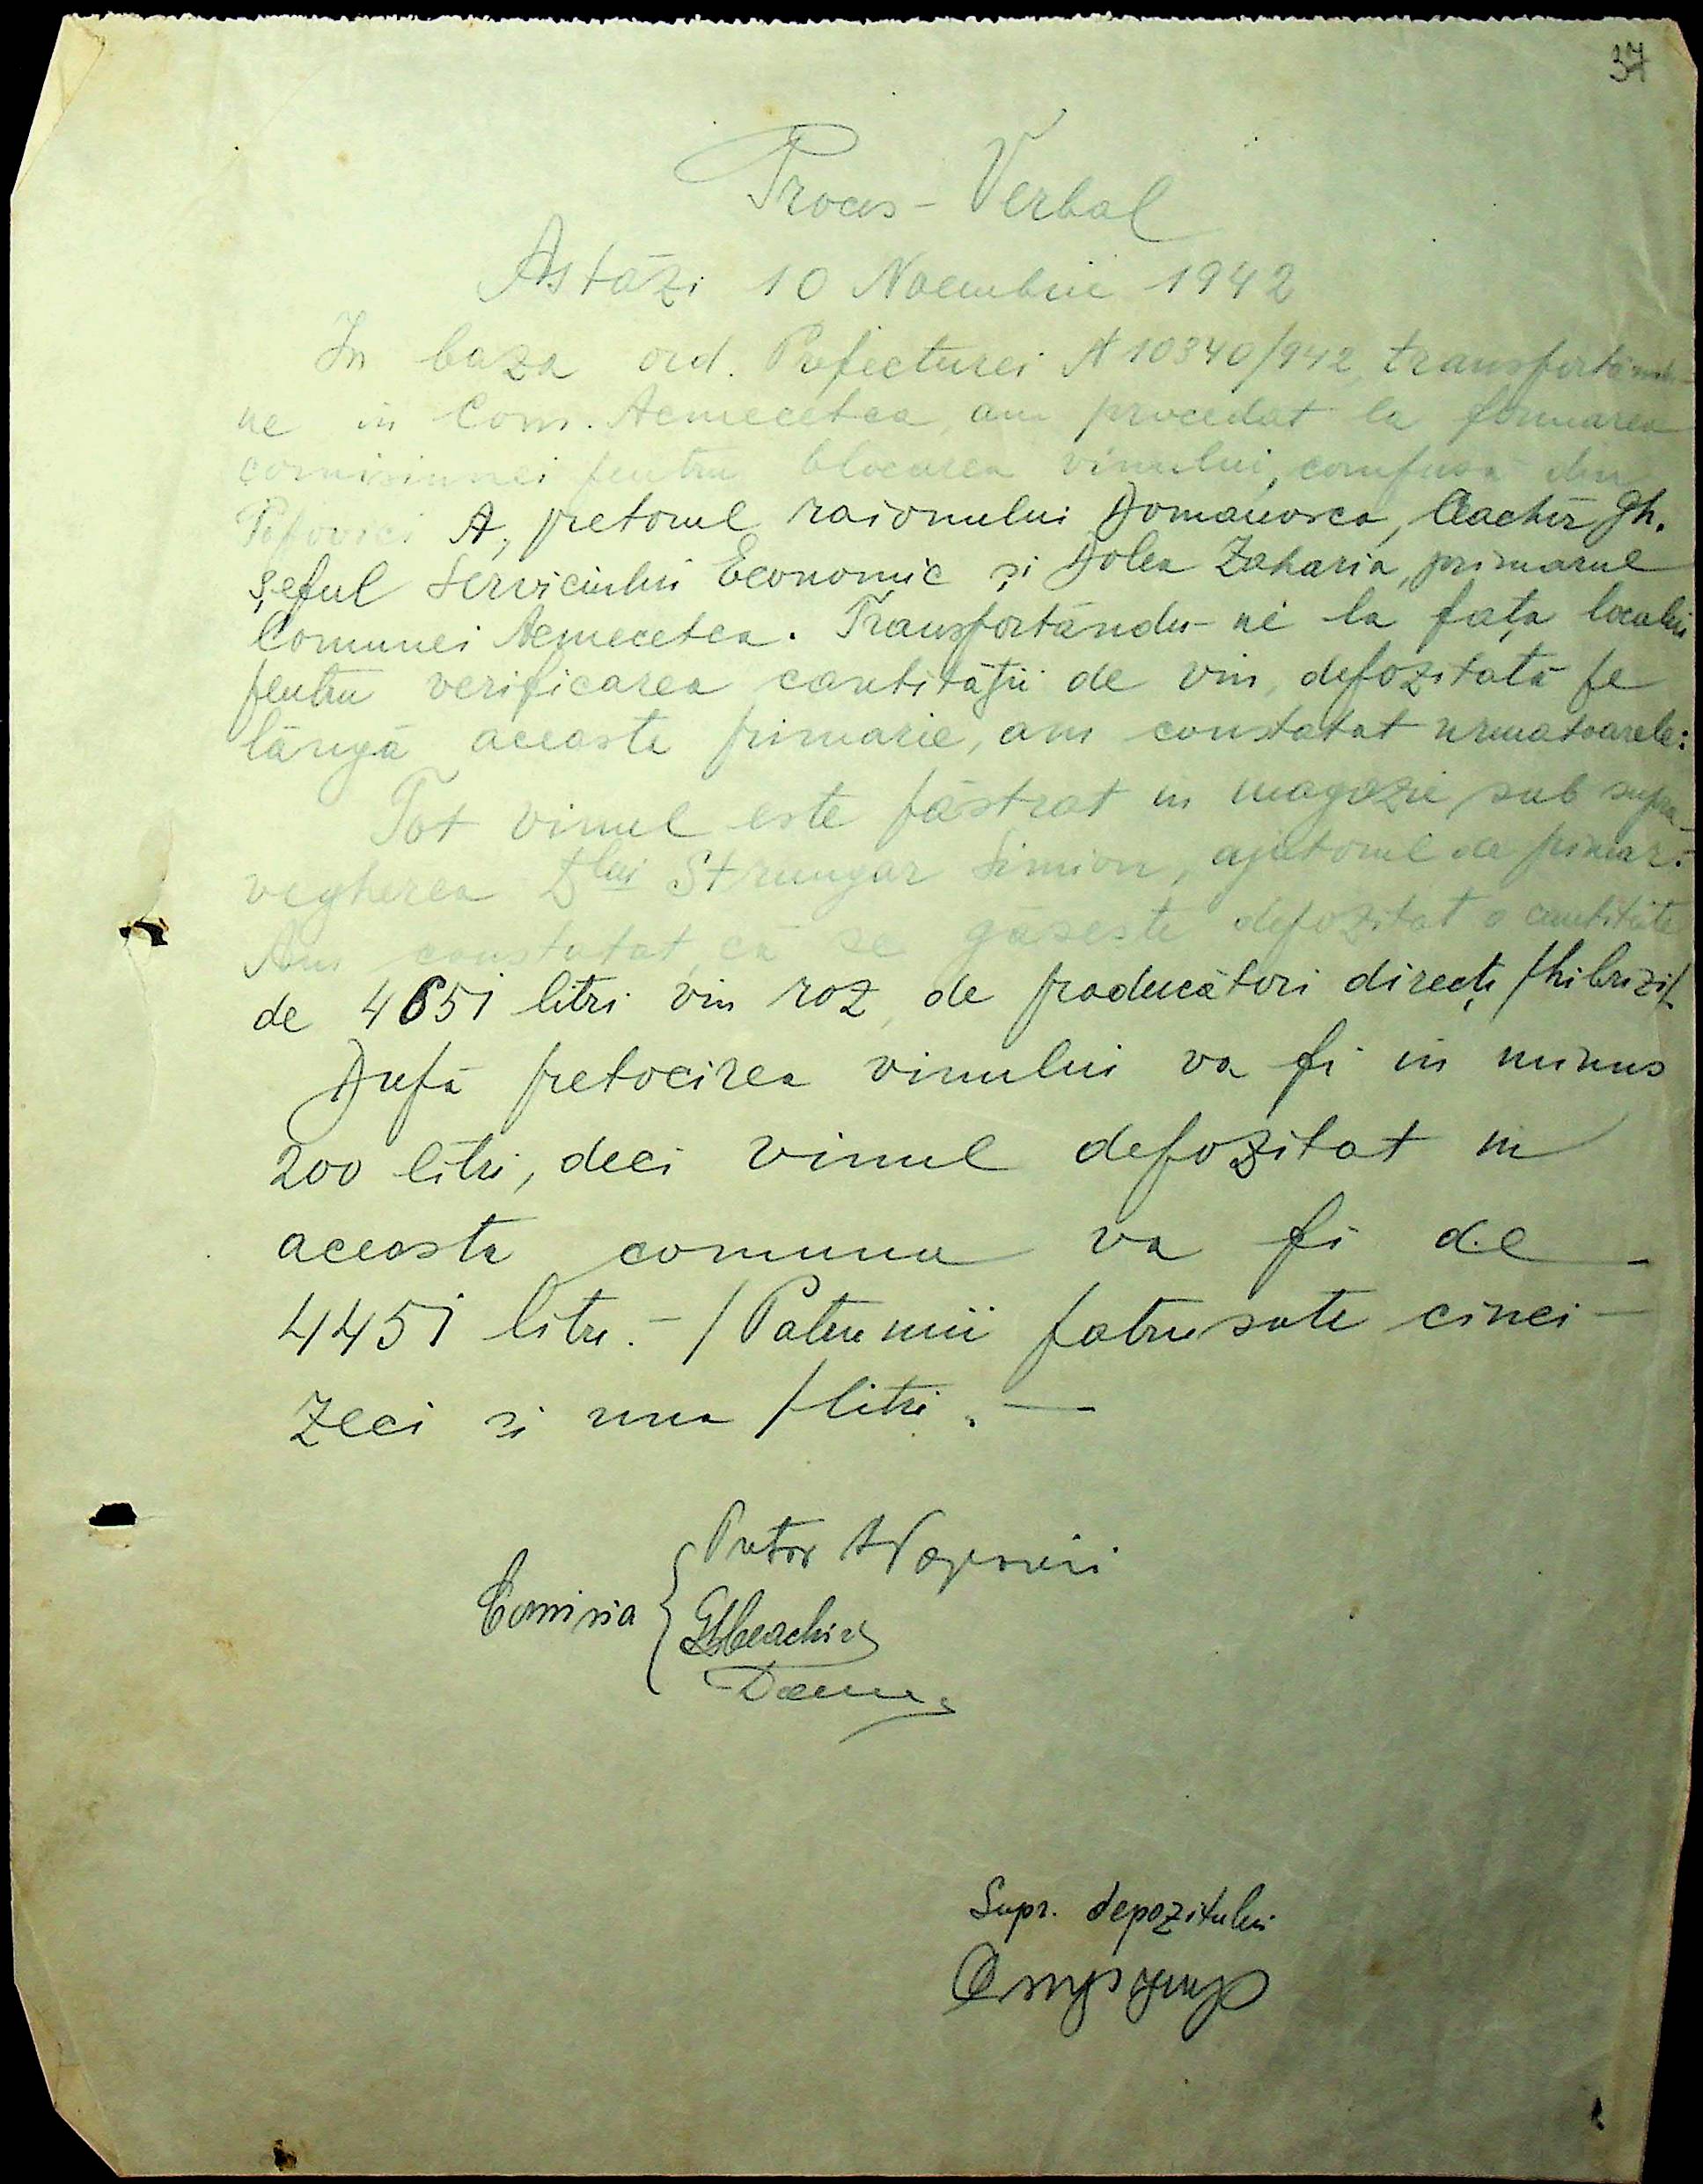 37
Proces-Verbal
Astăzi 10 Noembrie 1942
In baza ord. Prefecturei № 10340/942, transportându-
ne in Com. Acmecetca, am procedat la formarea
comisiunei pentru blocarea vinului, compusă din
Popovici A, pretorul raionului Domanovca, Ceachir Gh.
șeful Serviciului Economic și Dolea Zaharia, primarul
Comunei Acmecetca. Transportându-ne la fața locului
pentru verificarea cantității de vin, depozitată pe
lângă aceasta primarie, am constatat urmatoarele:
Tot vinul este păstrat in magazie sub supra-
vegherea Dlui Strungar Simion, ajutorul de primar.
Am constatat, că se găseste depozitat o cantitate
de 4651 litri vin roz, de producători direcți /hibrizi/.
După pretocirea vinului va fi in minus
200 litri, deci vinul depozitat in
aceasta comuna va fi de
4451 litri.- /Patru mii patru sute cinci-
zeci si una / litri.
Pretor APopovici
Comisia
GhCeachir
Supr. depozitului